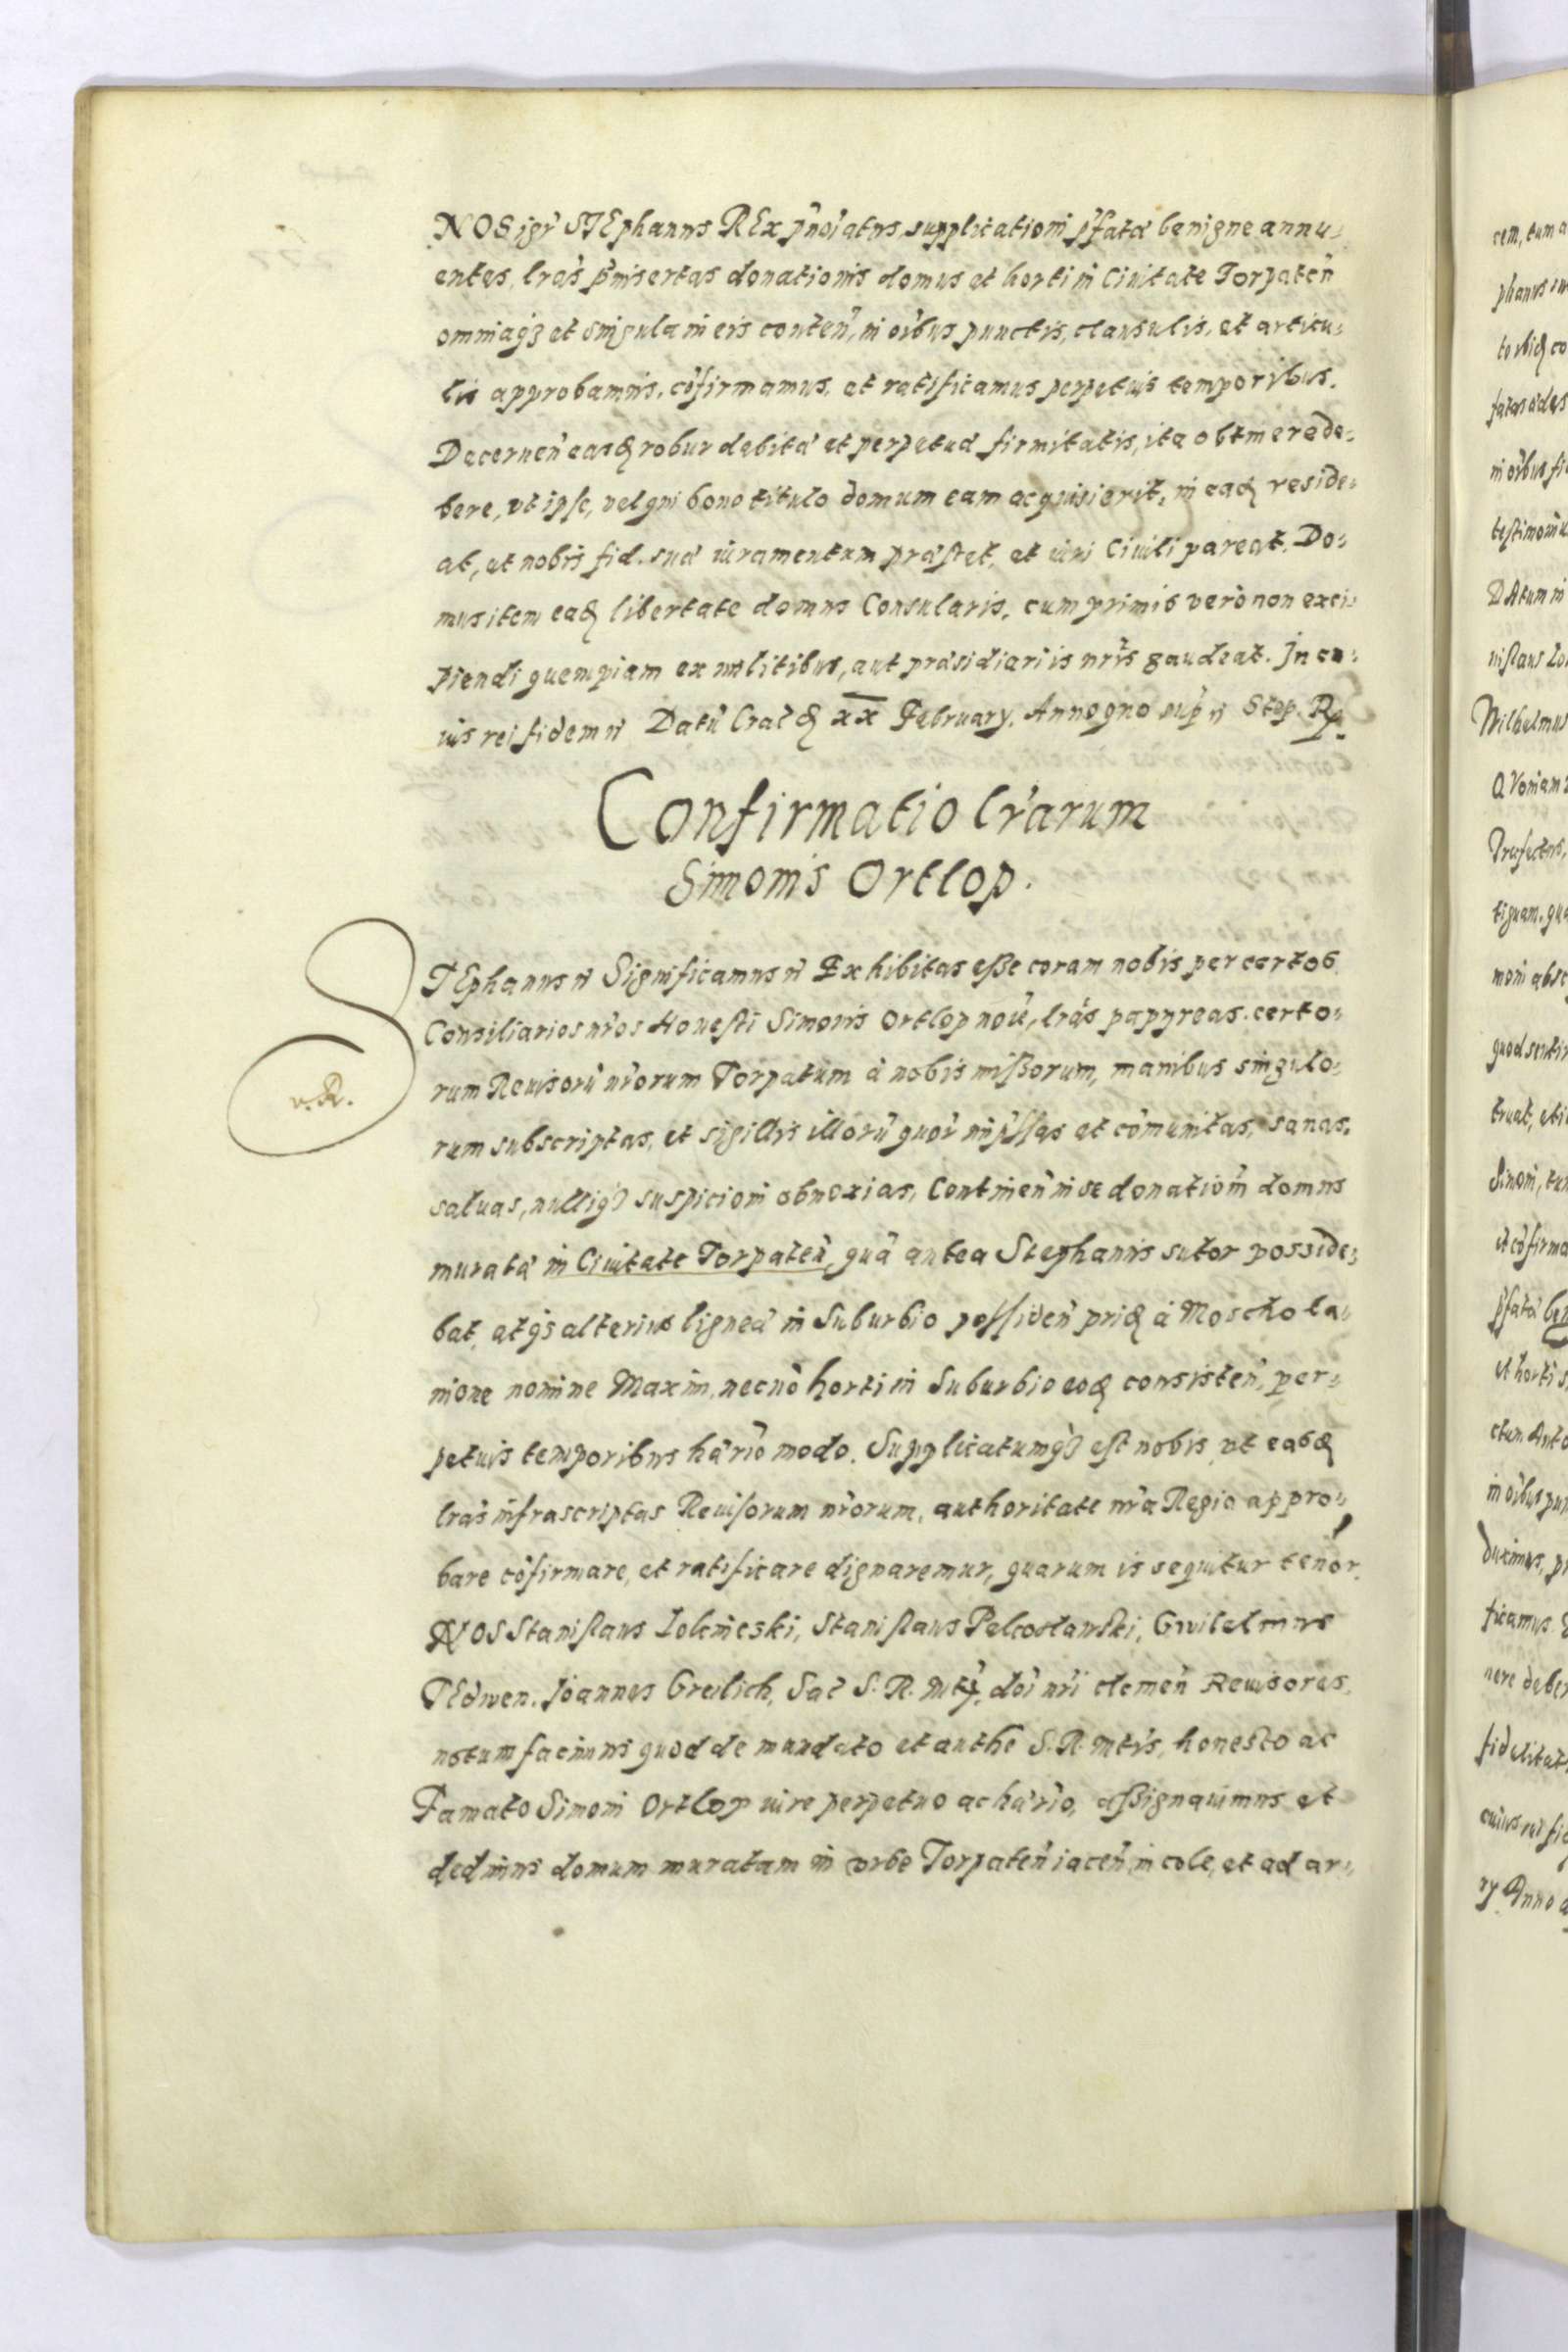 NOS igr̃ STEphanus REx p̃noĩatus, supplicationi p̃fatæ benigne annu-
entes, lr̃as p̃insertas donationis domus et horti in Ciuitate Torpateñ
omniaq3 et singula in eis conteñ, in oĩbus punctis, clausulis, et articu-
lis approbamus, cõfirmamus, et ratificamus perpetuis temporibus.
Decerneñ easdẽ robur debitæ et perpetuæ firmitatis, ita obtinere de-
bere, vt ipse, vel qui bono titulo domum eam acquisierit, in eadẽ reside-
at, et nobis fid. suæ iuramentum præstet, et iuri Ciuili pareat. Do-
mus item eadẽ libertate domus Consularis, cum primis verò non exci-
piendi quempiam ex militibus, aut præsidiarijs nr̃is gaudeat. In cu-
ius rei fidem etc Datũ Crac die xx February. Anno quo sup̃ etc Step. Rx
Confirmatio lr̃arum
Simonis Ortlop.
STEphanus etc Significamus etc Exhibitas esse coram nobis per certos
Consiliarios nr̃os Honesti Simonis Ortlop noĩe, lr̃as papyreas certo-
rum Reuisorũ nr̃orum Torpatum à nobis missorum, manibus singulo-
rum subscriptas, et sigillis illorũ quor̃ impr̃ssas et cõmunitas, sanas,
saluas, nulliq3 suspicioni obnoxias, Contineñ in se donatioñm domus
muratæ in Ciuitate Torpateñ, quã antea Stephanus sutor posside-
bat, atq3 alterius ligneæ in Suburbio possideñ pridẽ à Moscho la-
nione nomine Maxim, necnõ horti in Suburbio eodẽ consisteñ, per-
petuis temporibus hær̃io modo. Supplicatumq3 est nobis vt easdẽ
lr̃as infrascriptas Reuisorum nr̃orum, authoritate nr̃a Regia appro-
bare cõfirmare, et ratificare dignaremur, quarum is sequitur tenor.
NOS Stanislaus Zolcineski, Stanislaus Pelcoslauski, Gwilelmus
TEdwen. Joannes Greilich, Sac S. R. Mtis, doĩ nr̃i clemeñ Reuisores,
notum facimus quod de mandato et authe S. R. Mtis, honesto ac
Famato Simoni Ortlop iure perpetuo ac hær̃io, assignauimus et
dedimus domum muratam in vrbe Torpateñ iaceñ, incole, et ad ar-
v. R.